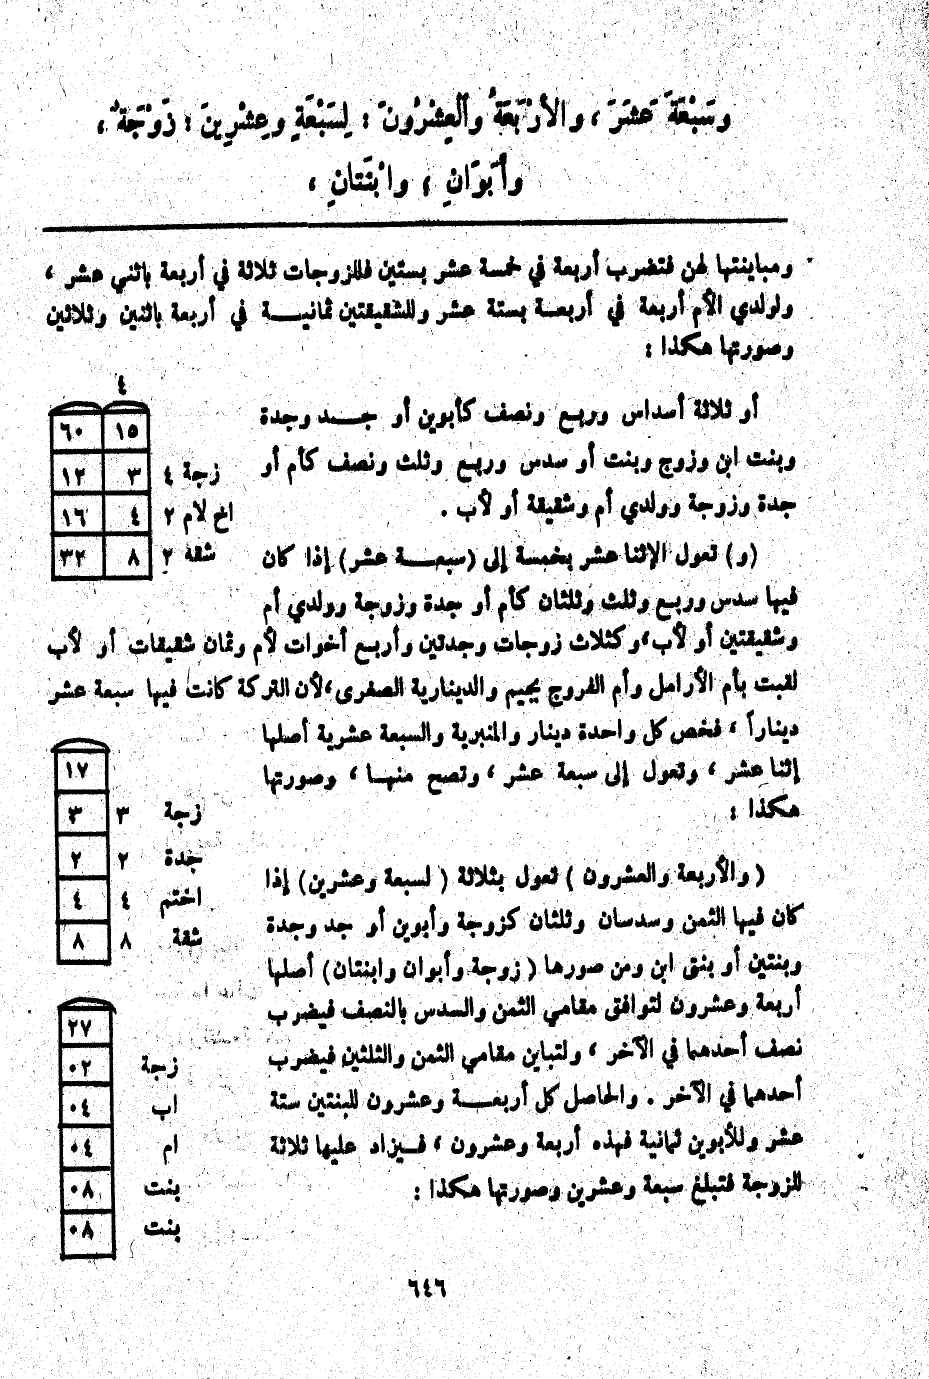 وسَبْعَةَ عَشَرَ ، والأرْبَعَةُ والْعِشْرُونَ : لِسَبْعَةٍ وعِشْرِينَ : زَوْجَةٌ ،
وأبَوَانِ ، وابْنَتانِ ،
ومباينتها لهن فتضرب أربعة في خمسة عشر بستين فللزوجات ثلاثة في أربعة باثني عشر ،
ولولدي الأم أربعة في أربعة بستة عشر وللشقيقتين ثمانية في أربعة باثنين وثلاثين
وصورتها هكذا :
٤
١٥ ٦٠
زجة ٤ ٣ ١٢
اخ لام ٢ ٤ ١٦
شقة ٢ ٨ ٣٢
أو ثلاثة أسداس وربع ونصف كأبوين أو جد وجدة
وبنت ابن وزوج وبنت أو سدس وربع وثلث ونصف كأم أو
جدة وزوجة وولدي أم وشقيقة أو لأب .
(و) تعول الإثنا عشر بخمسة إلى (سبعة عشر) إذا كان
فيها سدس وربع وثلث وثلثان كأم أو جدة وزوجة وولدي أم
وشقيقتين أو لأب، وكثلاث زوجات وجدتين وأربع أخوات لأم وثمان شقيقات أو لأب
لقبت بأم الأرامل وأم الفروج بجيم والدينارية الصغرى، لأن التركة كانت فيها سبعة عشر
ديناراً ، فخص كل واحدة دينار والمنبرية والسبعة عشرية أصلها
إثنا عشر ، وتعول إلى سبعة عشر ، وتصح منها ، وصورتها
هكذا :
١٧
زجة ٣ ٣
جدة ٢ ٢
اختم ٤ ٤
شقة ٨ ٨
( والأربعة والعشرون ) تعول بثلاثة ( لسبعة وعشرين) إذا
كان فيها الثمن وسدسان وثلثان كزوجة وأبوين أو جد وجدة
وبنتين أو بنتي ابن ومن صورها ( زوجة وأبوان وابنتان) أصلها
أربعة وعشرون لتوافق مقامي الثمن والسدس بالنصف فيضرب
نصف أحدهما في الآخر ، ولتباين مقامي الثمن والثلثين فيضرب
أحدهما في الآخر . والحاصل كل أربعة وعشرون للبنتين ستة
عشر وللأبوين ثمانية فهذه أربعة وعشرون ، فيزاد عليها ثلاثة
للزوجة فتبلغ سبعة وعشرين وصورتها هكذا :
٢٧
زجة ٠٣
اب ٠٤
ام ٠٤
بنت ٠٨
بنت ٠٨
٦٤٦